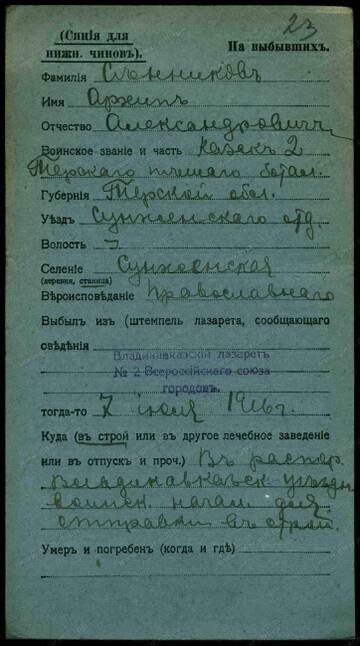 23
(Синія для
нижн. чиновъ).
На выбывшихъ.
Фамилія Сѣнниковъ
Имя Архипъ
Отчество Александровичъ
Воинское званіе и часть казакъ 2
Терскаго пѣшаго батал.
Губернія Терской обл.
Уѣздъ Сунженскаго отд
Волость —
Селеніе Сунженская
(деревня, станица)
Вѣроисповѣданіе Православнаго
Выбылъ изъ (штемпель лазарета, сообщающаго
свѣдѣнія
Владикавказскій лазаретъ
№ 2 Всероссійскаго союза
городовъ.
тогда-то 7 іюля 1916 г.
Куда (въ строй или въ другое лечебное заведеніе
или въ отпускъ и проч.) Въ распор.
Владикавказск. уѣздн
воинск. начал. для
отправки въ строй.
Умеръ и погребенъ (когда и гдѣ)